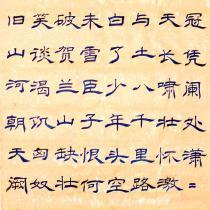 冠凭阑处潇=
天长啸壮怀激
与土八千里路
白了少年头空
未雪臣子恨何
破贺兰山缺壮
笑谈渴饥匈奴
旧山河朝天阙